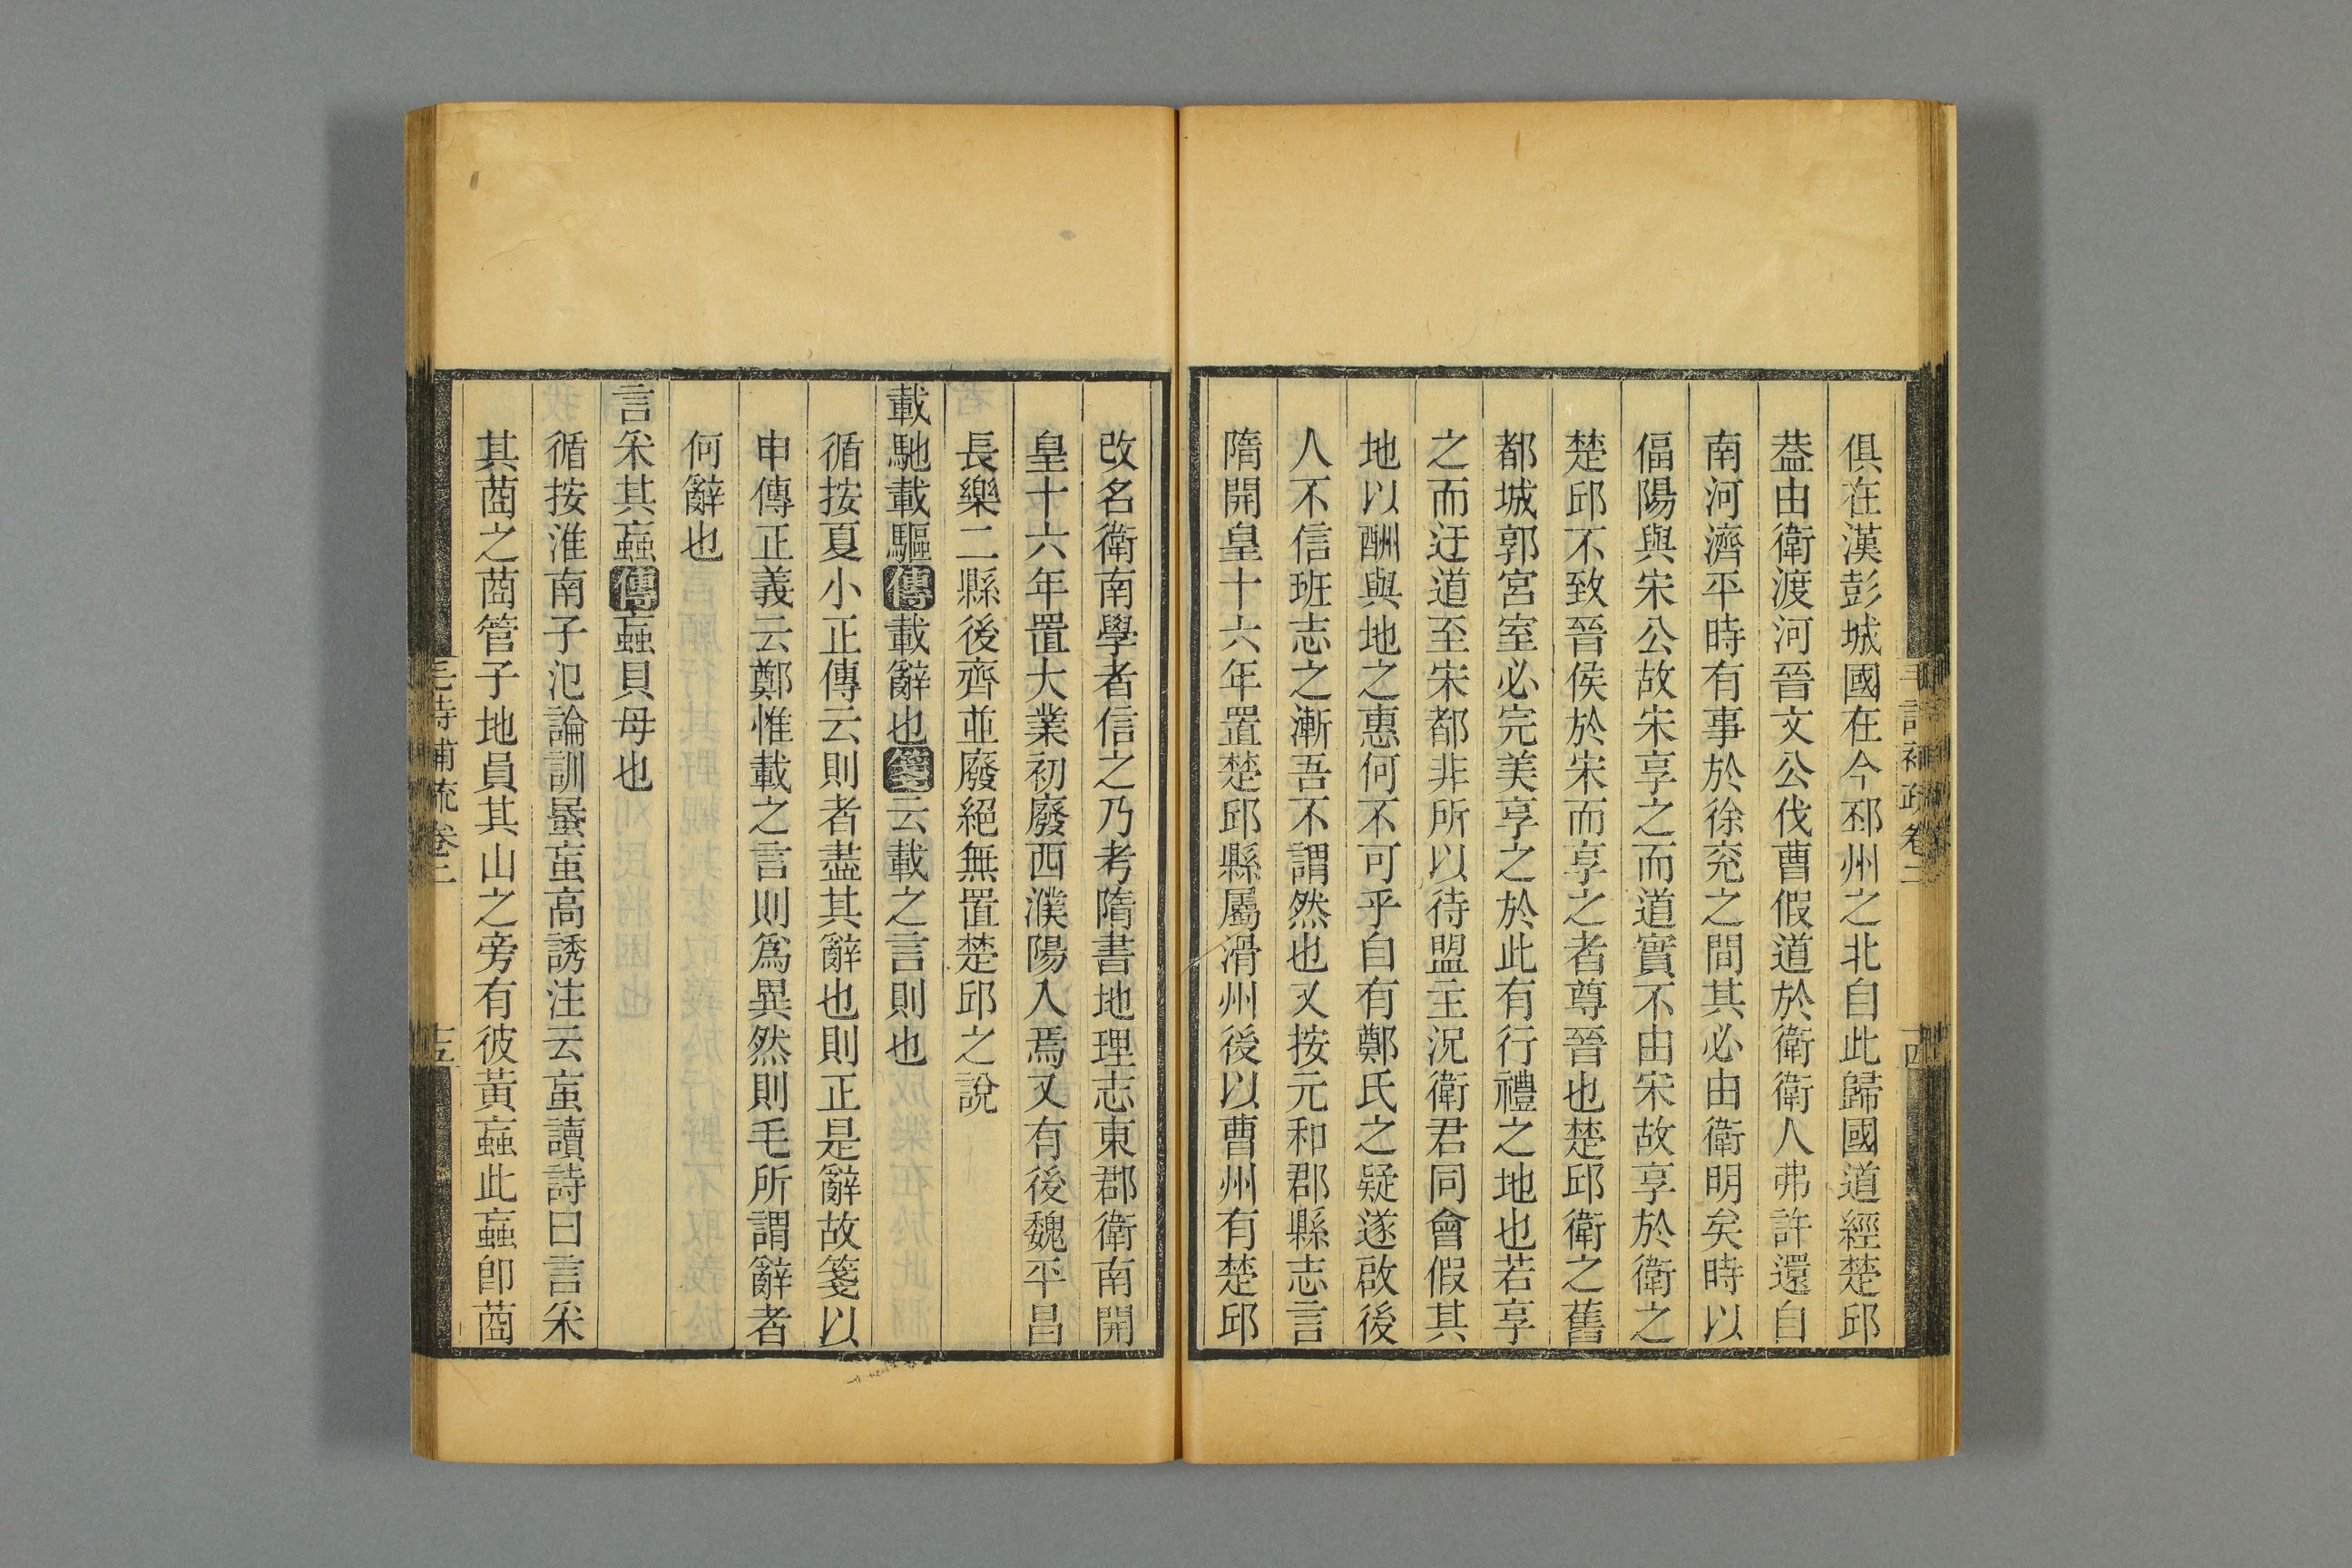 毛詩補疏卷二
十四
俱在漢彭城國在今邳州之北自此歸國道經楚邱
葢由衛渡河晉文公伐曹假道於衛衛人弗許還自
南河濟平時有事於徐兖之間其必由衛明矣時以
偪陽與宋公故宋享之而道實不由宋故享於衛之
楚邱不致晉侯於宋而享之者尊晉也楚邱衛之舊
都城郭宮室必完美享之於此有行禮之地也若享
之而迂道至宋都非所以待盟主況衛君同會假其
地以酬與地之惠何不可乎自有鄭氏之疑遂啟後
人不信班志之漸吾不謂然也又按元和郡縣志言
隋開皇十六年置楚邱縣屬滑州後以曹州有楚邱
改名衛南學者信之乃考隋書地理志東郡衛南開
皇十六年置大業初廢西濮陽入焉又有後魏平昌
長樂二縣後齊並廢絕無置楚邱之說
載馳載驅傳載辭也箋云載之言則也
循按夏小正傳云則者盡其辭也則正是辭故箋以
申傳正義云鄭惟載之言則爲異然則毛所謂辭者
何辭也
言釆其蝱傳蝱貝母也
循按淮南子氾論訓蝱䖟高誘注云䖟讀詩曰言釆
其莔之莔管子地員其山之旁有彼黃蝱此蝱卽莔
毛詩補疏卷二
十五